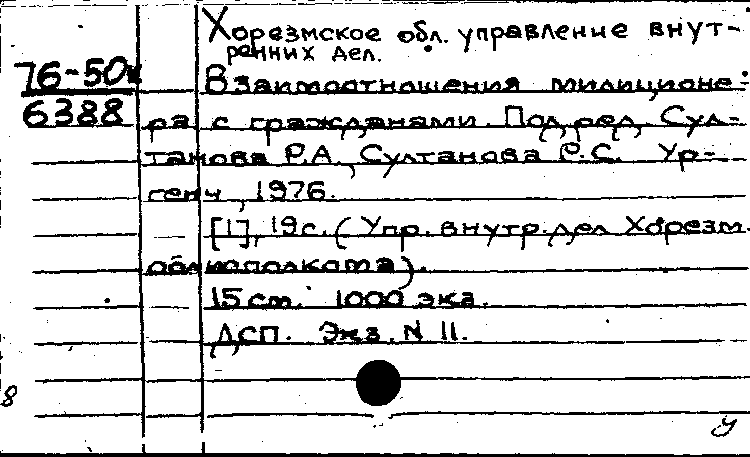 Хорезмское обл. управление внут-
ренних дел.
76-50к
Взаимоотношения милиционе-
6388
ра с гражданами. Под ред. Сул-
танова Р.А., Султанова Р.С. Ур-
генч, 1976.
[1], 19 с. (Упр. внутр. дел Хорезм.
облисполкома).
15 см. 1000 экз.
ДСП. Экз. N 11.
8
У